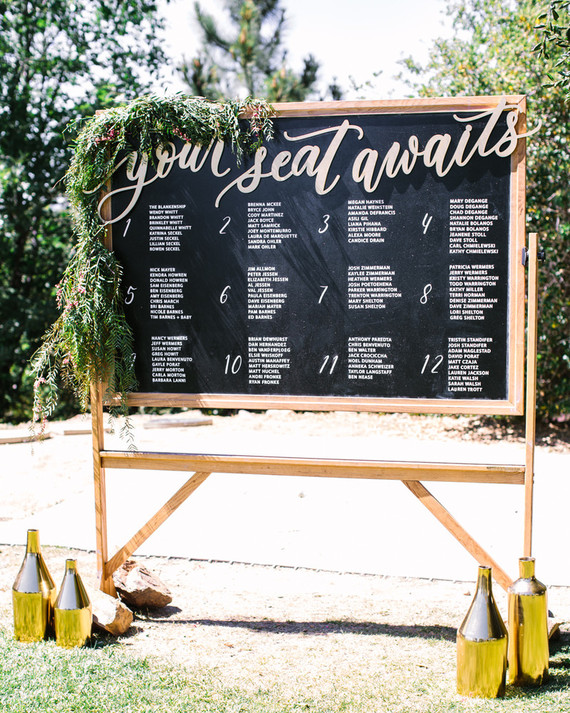 your seat awaits
1
THE BLANKENSHIP
WENDY WHITT
BRANDON WHITT
BRINKLEY WHITT
QUINNABELLE WHITT
KATRINA SECKEL
JUSTIN SECKEL
LILLIAN SECKEL
NOWEN SECKEL
2
BRENNA MCKEE
BRYCE JOHN
CODY MARTINEZ
JACK BOYCE
MATT SAMYICK
JOEY MONTEMURRO
LAURA DE MARQUETTE
SANDRA OHLER
MARK OHLER
3
MEGAN HAYNES
NATALIE WEINSTEIN
AMANDA DEFRANCIS
ASILI GIL
LIANA PINHAL
KIRSTIE HIBBARD
ALEXA MOORE
CANDICE DRAIN
4
MARY DEGANGE
DOUG DEGANGE
CHAD DEGANGE
SHANNON DEGANGE
NATALIE BOLANOS
BRYAN BOLANOS
JEANENE STOLL
DAVE STOLL
CARL CHMIELEWSKI
KATHY CHMIELEWSKI
5
NICK MAYER
KENDRA HOWREN
DONALD HOWREN
SAM EISENBERG
JON EISENBERG
AMY EISENBERG
CHRIS MARCH
BRI BARNES
NICOLE BARNES
TIM BARNES & BABY
6
JIM ALLMON
PETER JESSEN
ELIZABETH JESSEN
AL JESSEN
VAL JESSEN
PAULA EISENBERG
DAVE EISENBERG
MARIAH MAYER
PAM BARNES
ED BARNES
7
JOSH ZIMMERMAN
KAYLEE ZIMMERMAN
HEATHER WERMERS
JOSH POETOEHENA
PARKER WARRINGTON
TRENTON WARRINGTON
MARY SHELTON
SUSAN SHELTON
8
PATRICIA WERMERS
JERRY WERMERS
KEISTY WARRINGTON
TODD WARRINGTON
KATHY MILLER
TERRI NORMAN
DENISE ZIMMERMAN
DAVE ZIMMERMAN
LORI SHELTON
GREG SHELTON
NANCY WERMERS
JEFF WERMERS
SUSAN HOWIT
GREG HOWIT
LAURA BENVENUTO
GAYLE PORAT
JERRY MORTON
CARLA MORTON
BARBARA LANNI
10
BRIAN DEWHURST
DAN HERNANDEZ
BEN VANDERPLOEG
ELSIE WYISKOFF
AUSTIN MAHAFFEY
MAT HERSKOWITZ
MATT HUCHEL
ANDRI FRONKE
RYAN FRONKE
11
ANTHONY PAREDTA
CHRIS BENVENUTO
BEN WALTER
JACK CROCICCHIA
NOEL DURHAM
ANNEKA SCHWEIZER
TAYLOR LANGSTAFF
BEN NEASE
12
TRISTIN STANDIFER
JOSH STANDIFER
ADAM NAGLESTAD
DAVID PORAT
MATT CZAJA
JAKE CORTEZ
LAUREN JACKSON
KATIE WALSH
SARAH WALSH
LAUREN TROTT